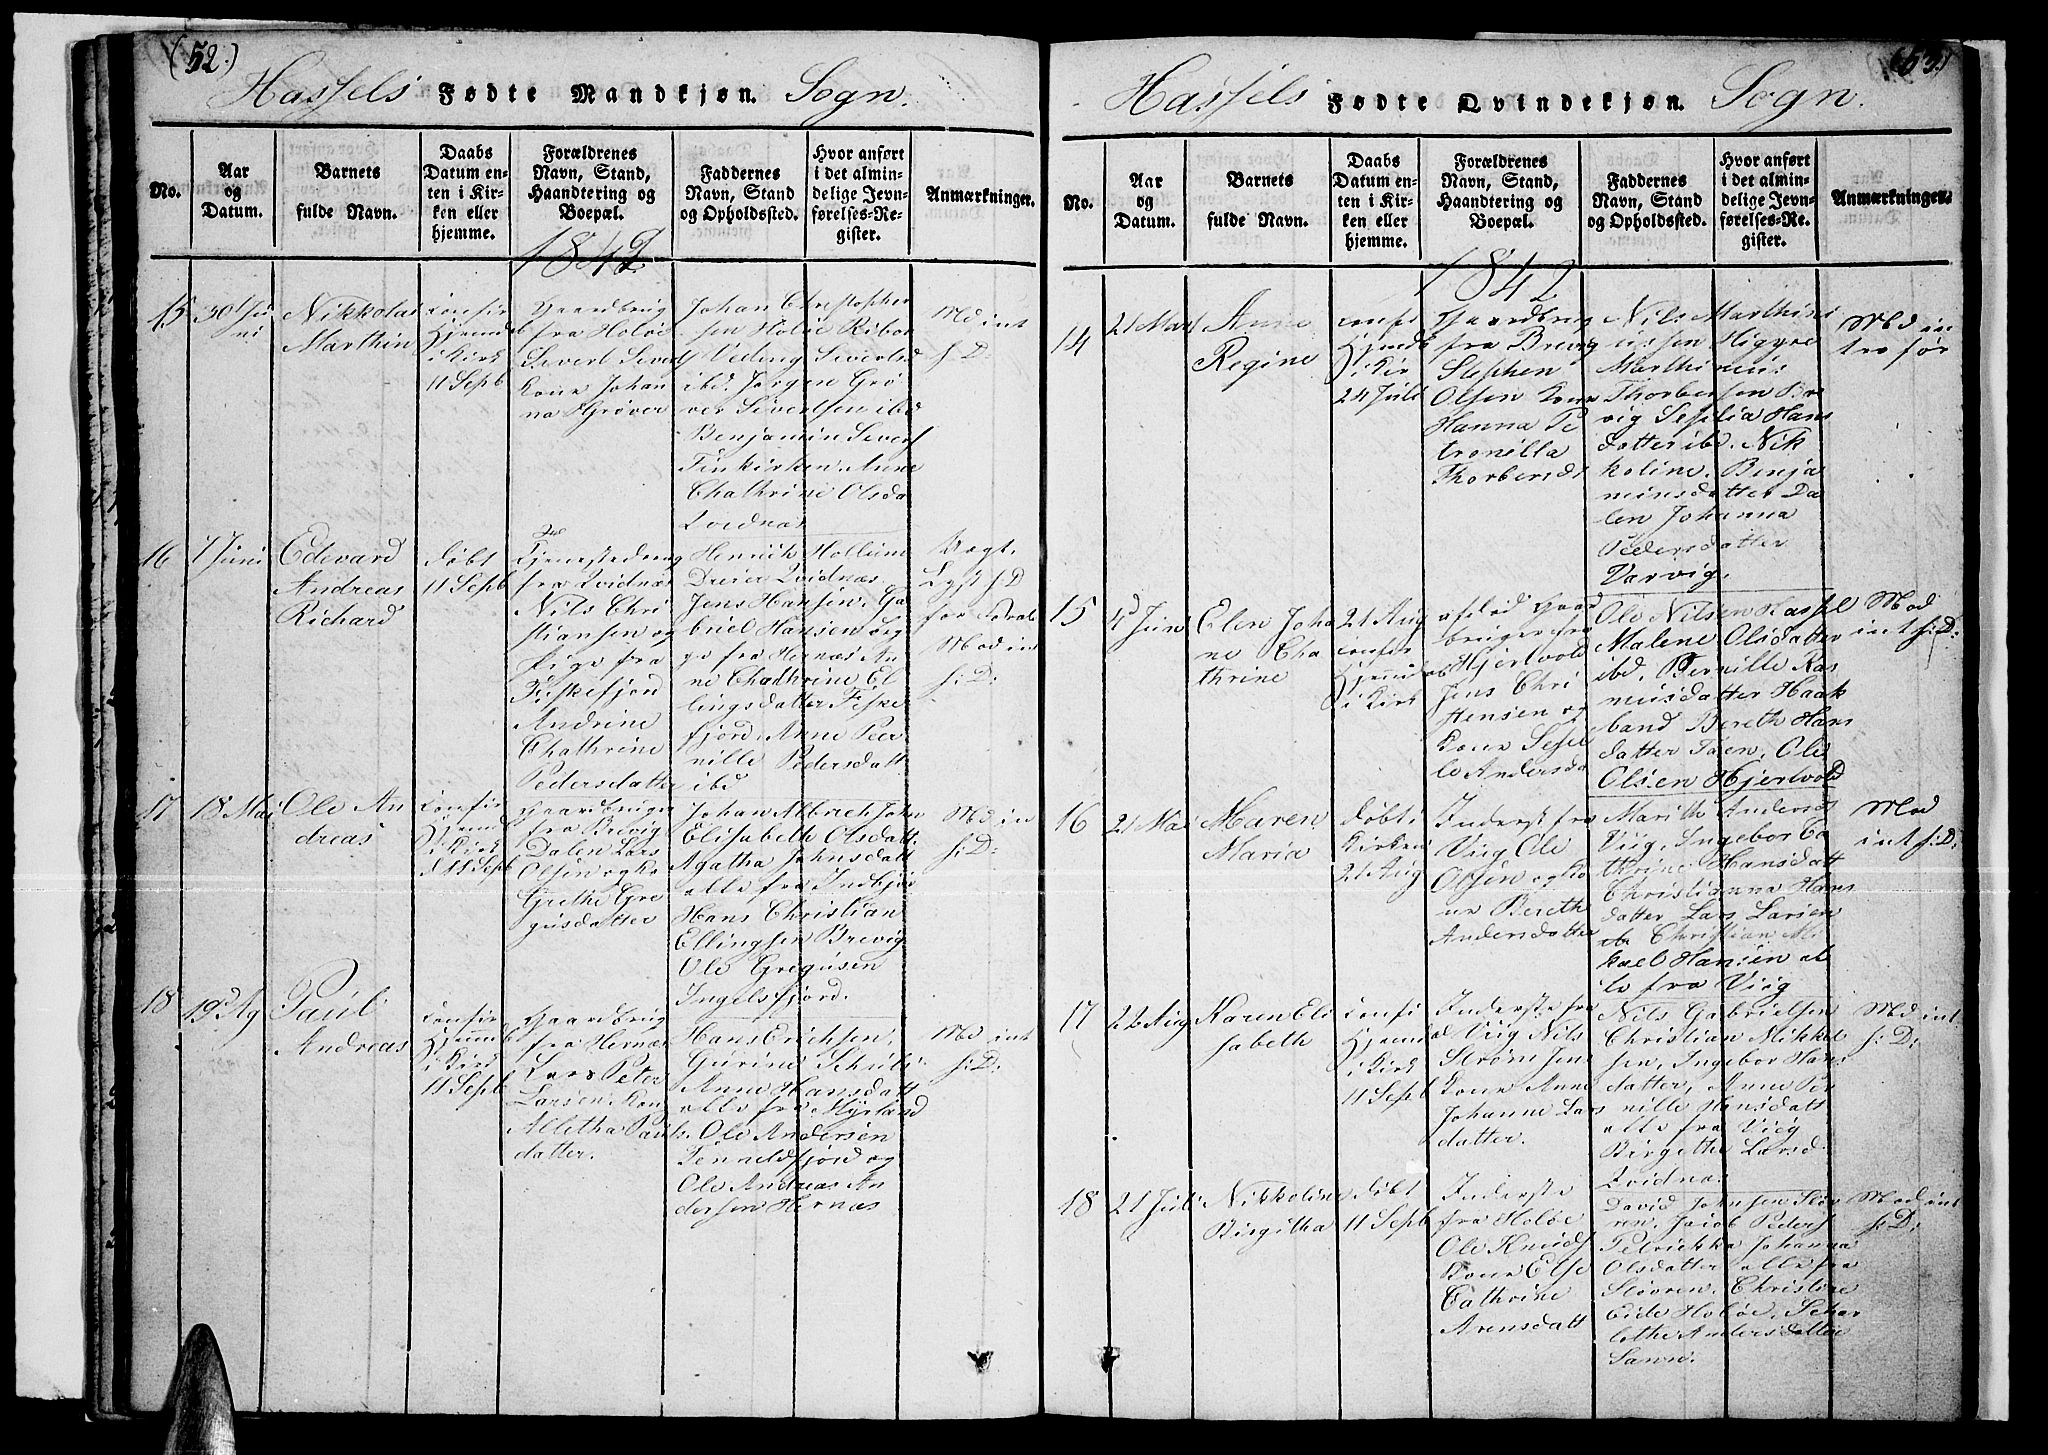 (52.)
Hassels Fødte Mandkjøn. Sogn.
No.
Aar
og
Datum.
Barnets
fulde Navn.
Daabs
Datum en-
ten i Kir-
ken eller
hjemme.
Forældrenes
Navn, Stand,
Haandtering og
Boepæl.
Faddernes
Navn, Stand
og Opholdssted.
Hvor anført
i det almin-
delige Jevn-
førelses-Re-
gister.
Anmærkninger.
1842
15
30 Ju
ni
Nikkolai
Marthin
confir
Hjemd
i Kirk
11 Sepb
Gaardbrug
fra Holøe
Sivert Sivert
Kone Johan
na Grøver
Johan Christopher
sen Holøe Ribor
Veding Sivertsd
ibd. Jørgen Grø
ver Sivertsen ibd
Benjamin Sivers
Finkirken Anne
Chathrine Olsda
Qvidnæs
Md int
s: D:
16
7 Juni
Edevard
Andreas
Richard
døbt
11 Sepb
Tjenestedreng
fra Qvidnæs
Nils Chri
stiansen og
Pige fra
Fiskefjord
Andrine
Chathrine
Pedersdatter
Henrich Hollum
Dreier Qvidnæs
Jens Hansen, Ga
briel Hansen Pi
ge fra Hernæs An
ne Chathrine El
lingsdatter Fiske
fjord, Anne Peer
nille Pedersdatt
ibd
Mod int
s: D:
17
18 Mai
Ole An
dreas
confir
Hjemd
i Kirk
d 11 Sepb
Gaardbruger
fra Brevig
Dalen Lars
Olsen og Ko
Grethe Gre
gusdatter
Johan Albrect John
Elisabeth Olsdatt.
Agatha Johnsdatt
alle fra Indkjør
Hans Christian
Ellingsen Brevig
Ole Gregusen
Ingelsfjord.
Md in
s: D:
18
19d Ag
Paul
Andreas
confir
Hjemd
i Kird
11 Sepb
Gaardbrug
fra Hernæs
Lars Peter
Larsen. Kon
Alletha Paul
datter.
Hans Erichsen,
Gurine Schuls
Anne Hansdatt
alle fra Myrland
Ole Andersen
Tennildfjord og
Ole Andreas An
dersen Hernæs
Md int
s: D:
(53.)
Hassels Fødte Qvindekjøn. Sogn.
No.
Aar
og
Datum.
Barnets
fulde Navn.
Daabs
Datum en-
ten i Kir-
ken eller
hjemme.
Forældrenes
Navn, Stand,
Haandtering og
Boepæl.
Faddernes
Navn, Stand
og Opholdssted.
Hvor anført
i det almin-
delige Jevn-
førelses-Re-
gister.
Anmærkninger.
1842
14
21 Mai
Anne
Regine
confi
Hjemd
i Kir
24 Juli
Gaardbrug
fra Brevig
Stephen
Olsen Kone
Hanna Pe
tronilla
Thorbersdt
Nils Marthini
ussen
Marthinus
Thorbersen Bre
vig Sessilia Hans
datter ibd. Nik
koline Benja
minsdatter Da
len Johanna
Pedersdatter
Varvig.
Mod in
tro før
15
4d Jun
Elen Joha
ne Cha
thrine
21 Aug
confir
Hjemd
i Kirk
afskd Gaard
bruger fra
Hjertvold
Jens Chri
stensen og
Kone Sesil
le Andersda
Ole Nilsen Hassel
Malene Olsdatter
ibd. Pernille Ras
musdatter Haak
band Bereth Hans
datter Taen. Ole
Olsen Hjertvold
Mod
int s: D:
16
21 Mai
Maren
Maria
døbt i
Kirken
21 Aug
Inderst fra
Viig Ole
Olsen og Ko
ne Bereth
Andersdatter
Marith Andersd
Viig, Ingebor Ca
thrine Hansdatt
Christianna Hans
datter Lars Larsen
Christian Mi
kael Hansen al
le fra Viig
Mod
int s: D:
17
22 Aug
Karen Eli
sabeth
confi
Hjemd
i Kirk
11 Sepb
Inderste fra
Viig Nils
Strøm Jens
Kone Anne
Johanne Lars
datter.
Nils Gabrielsen
Christian Mikkel
sen, Ingebor Hans
datter, Anne Per
nille Hansdatt
alle fra Viig
Birgithe Larsd.
Qvidnæs
Md int
s: D:
18
21 Juli
Nikkoline
Birgitha
døbt
11 Sepb
Inderste
fra Holøe
Ole Knuds
Kone Else
Cathrine
Arensdatt
David Johnsen Slov
ren. Jacob Peders
Petrikka Johanna
Olsdatter alle fra
Slovren. Christine
Eide Holøe. Schar
lothe Andersdatter
Sanne.
Mod int
s: D: